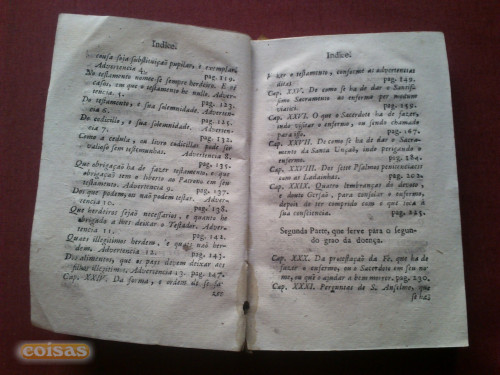 Indice.
cousa seja substituiçaõ pupilar, e exemplar.
Advertencia 4. pag. 119.
No testamento nomee-se sempre herdeiro. E
casos, em que o testamento he nullo. Adver-
tencia 5. pag. 123.
Do testamento, e sua solemnidade. Adver-
tencia 6. pag. 125.
Do codicillo, e sua solemnidade. Adverten-
cia 7. pag. 133.
Como a cedula, ou livro codicillar póde ser
valioso sem testemunhas. Advertencia 8.
pag. 135.
Que obrigaçaõ ha de fazer testamento, e que
obrigaçaõ tem o liberto ao Patrono em seu
testamento. Advertencia 9. pag. 137.
Dos que podem, ou naõ podem testar. Adver-
tencia 10. pag. 138.
Que herdeiros sejaõ necessarios, e quanto he
obrigado a lhes deixar o Testador. Adver-
tencia 11. pag. 142.
Quaes illegitimos herdem, e quaes naõ her-
dem. Advertencia 12. pag. 143.
Dos alimentos, que os pays devem deixar aos
filhos illegitimos. Advertencia 13. pag. 147.
Cap. XXIV. Da forma, e ordem de se fa-
zer
Indice.
fazer o testamento, conforme as advertencias
ditas. pag. 149.
Cap. XXV. De como se ha de dar o Santissi-
mo Sacramento ao enfermo per modum
viatici. pag. 159.
Cap. XXVI. O que o Sacerdote ha de fazer,
indo visitar o enfermo, ou sendo chamado
para isso. pag. 167.
Cap. XXVII. De como se ha de dar o Sacra-
mento da Santa Unçaõ, indo prégando-
lhe. pag. 184.
Cap. XXVIII. Dos sette Psalmos penitenciaes
com as Ladainhas. pag. 202.
Cap. XXIX. Quatro lembranças do devoto,
e douto Gersaõ, para o enfermo,
depois de ter cumprido com o que toca á
sua consciencia. pag. 225.
Segunda Parte, que serve para o segun-
do grao da doença.
Cap. XXX. Da protestaçaõ da Fé, que ha de
fazer o enfermo, ou o Sacerdote em seu no-
me, ou que o ajudar a bem morrer. pag. 230.
Cap. XXXI. Perguntas de S. Anselmo, que
se haõ
coisas